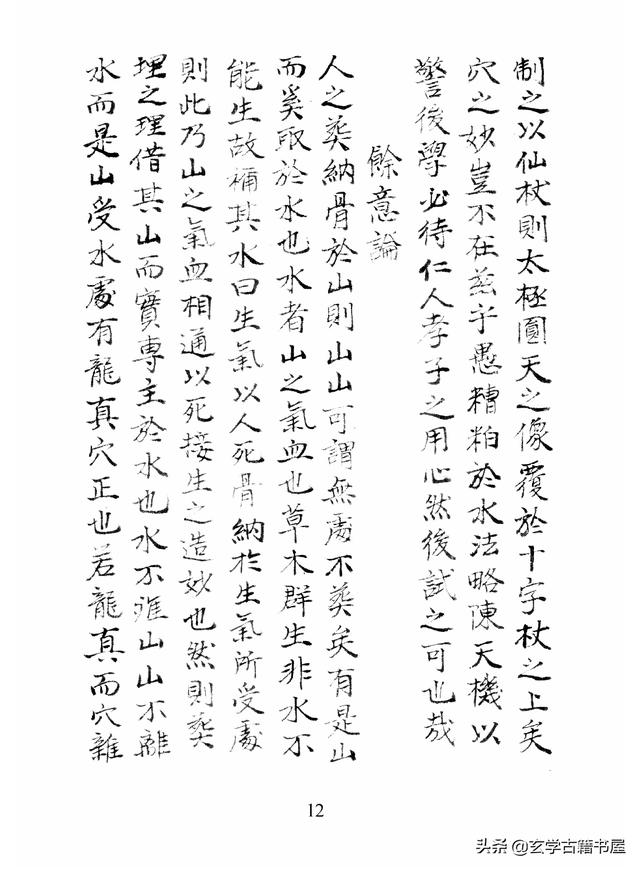 制之以仙杖則太極圓天之像覆於十字杖之上矣
穴之妙豈不在茲乎愚糟粕於水法略陳天機以
警後學必待仁人孝子之用心然後試之可也哉
餘意論
人之葬納骨於山則山山可謂無處不葬矣有是山
而奚取於水也水者山之氣血也草木群生非水不
能生故補其水曰生氣以人死骨納於生氣所受處
則此乃山之氣血相通以死接生之造妙也然則葬
埋之理借其山而實專主於水也水不離山山不離
水而是山受水處有龍真穴正也若龍真而穴雜
12
头条 @玄学古籍书屋